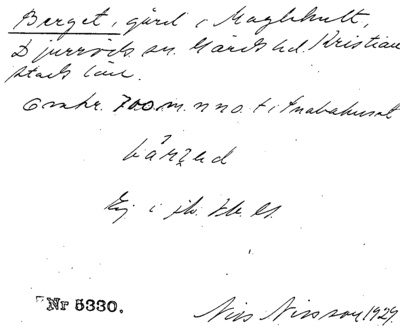 Berget, gård i Maglehult,
Djurröds sn. Gärds hd. Kristian
stads län.
Omkr. 700 m. nno. f.
bärʒəd
Ej i jb. el.
Nr 5330.
Nils Nilsson 1929.